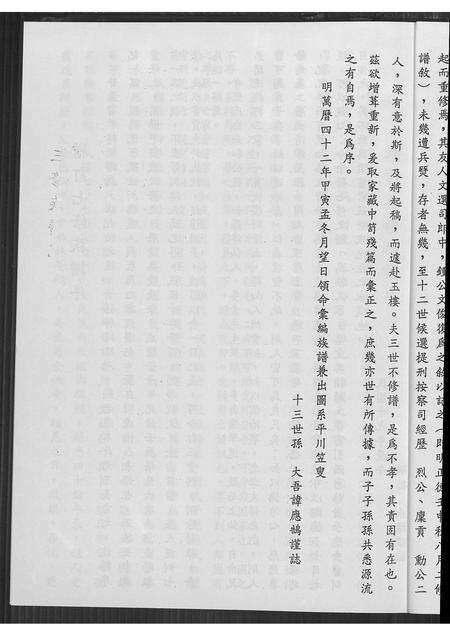 起而重修焉,其友人文選司郎中,鍾公文俊復爲之敍以誌之(即明正德壬申秋八月二修
譜敘),未幾遭兵燹,存者無幾,至十二世候選提刑按察司經歷 烈公、廩貢 勳公二
人,深有意於斯,及將起稿,而遽赴玉樓。夫三世不修譜,是爲不孝,其責固有在也。
茲欲增葺重新,爰取家藏中笥殘篇而彙正之,庶幾亦世有所傳據,而子子孫孫共悉源流
之有自焉,是爲序。
明萬曆四十二年甲寅孟冬月望日領命彙編族譜兼出圖系平川笠叟
十三世孫 大吾諱應鵠謹誌